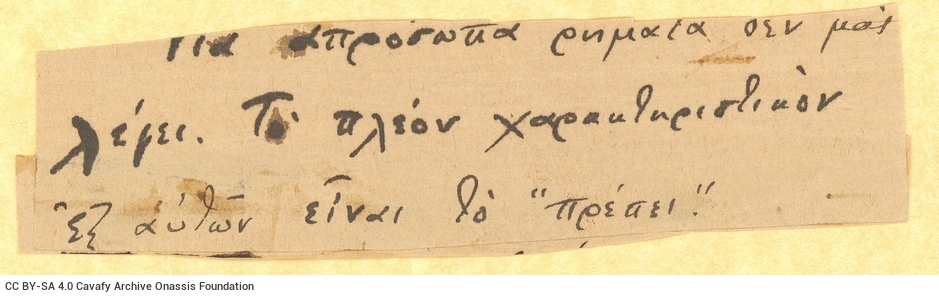 Για απρόσωπα ρηματα δεν μας
λέγει. Τὸ πλέον χαρακτηριστικὸν
ἐξ αὐτῶν εἶναι τὸ "πρέπει".
CC BY-SA 4.0 Cavafy Archive Onassis Foundation